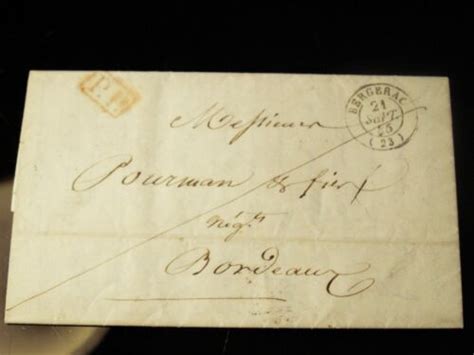 P.P.
BERGERAC
21
SEPT.
45
(23)
Messieurs
Pourman & fils
négts
Bordeaux